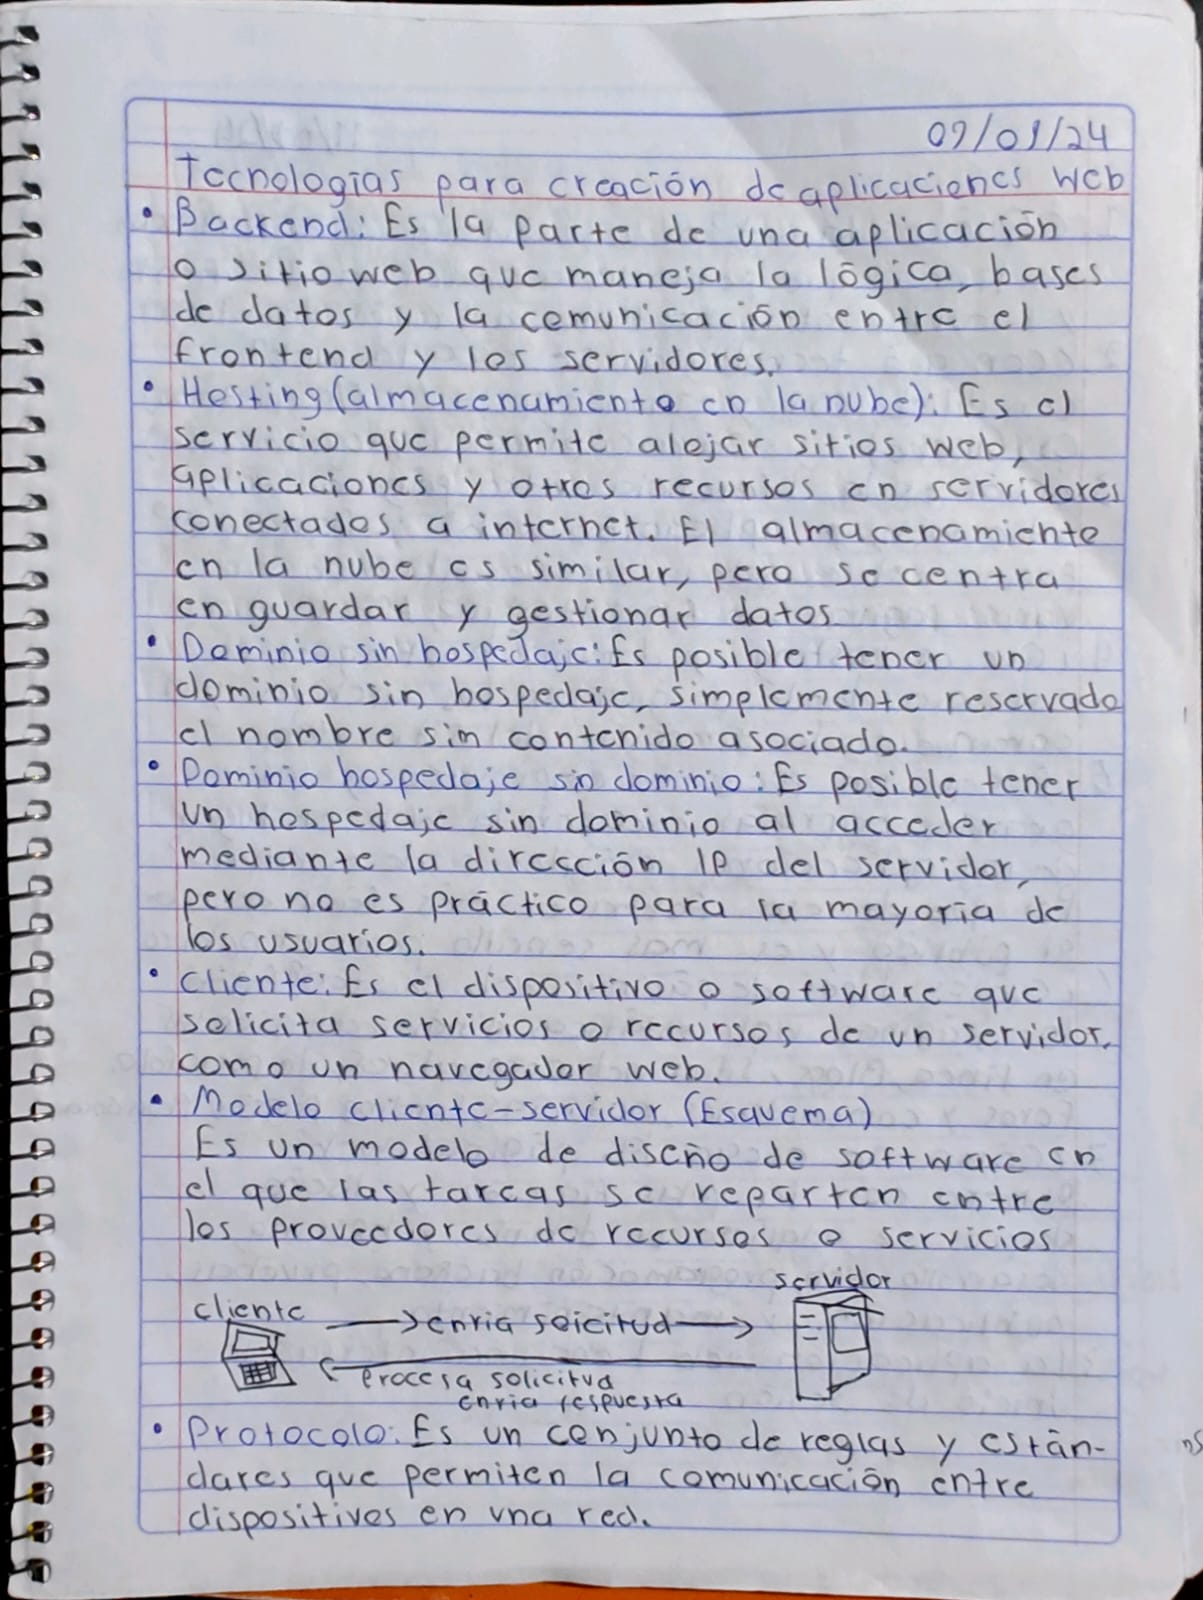 09/09/24
Tecnologías para creación de aplicaciones web
• Backend: Es la parte de una aplicación
o sitio web que maneja la lógica, bases
de datos y la comunicación entre el
frontend y los servidores.
• Hosting (almacenamiento en la nube): Es el
servicio que permite alojar sitios web,
aplicaciones y otros recursos en servidores
conectados a internet. El almacenamiento
en la nube es similar, pero se centra
en guardar y gestionar datos
• Dominio sin hospedaje: Es posible tener un
dominio sin hospedaje, simplemente reservado
el nombre sin contenido asociado.
• Dominio hospedaje sin dominio: Es posible tener
un hospedaje sin dominio al acceder
mediante la dirección IP del servidor,
pero no es práctico para la mayoría de
los usuarios.
• Cliente: Es el dispositivo o software que
solicita servicios o recursos de un servidor,
como un navegador web.
• Modelo cliente-servidor (Esquema)
Es un modelo de diseño de software en
el que las tareas se reparten entre
los proveedores de recursos o servicios
servidor
cliente
envia soicitud
procesa solicitud
envia respuesta
• Protocolo: Es un conjunto de reglas y están-
dares que permiten la comunicación entre
dispositivos en una red.